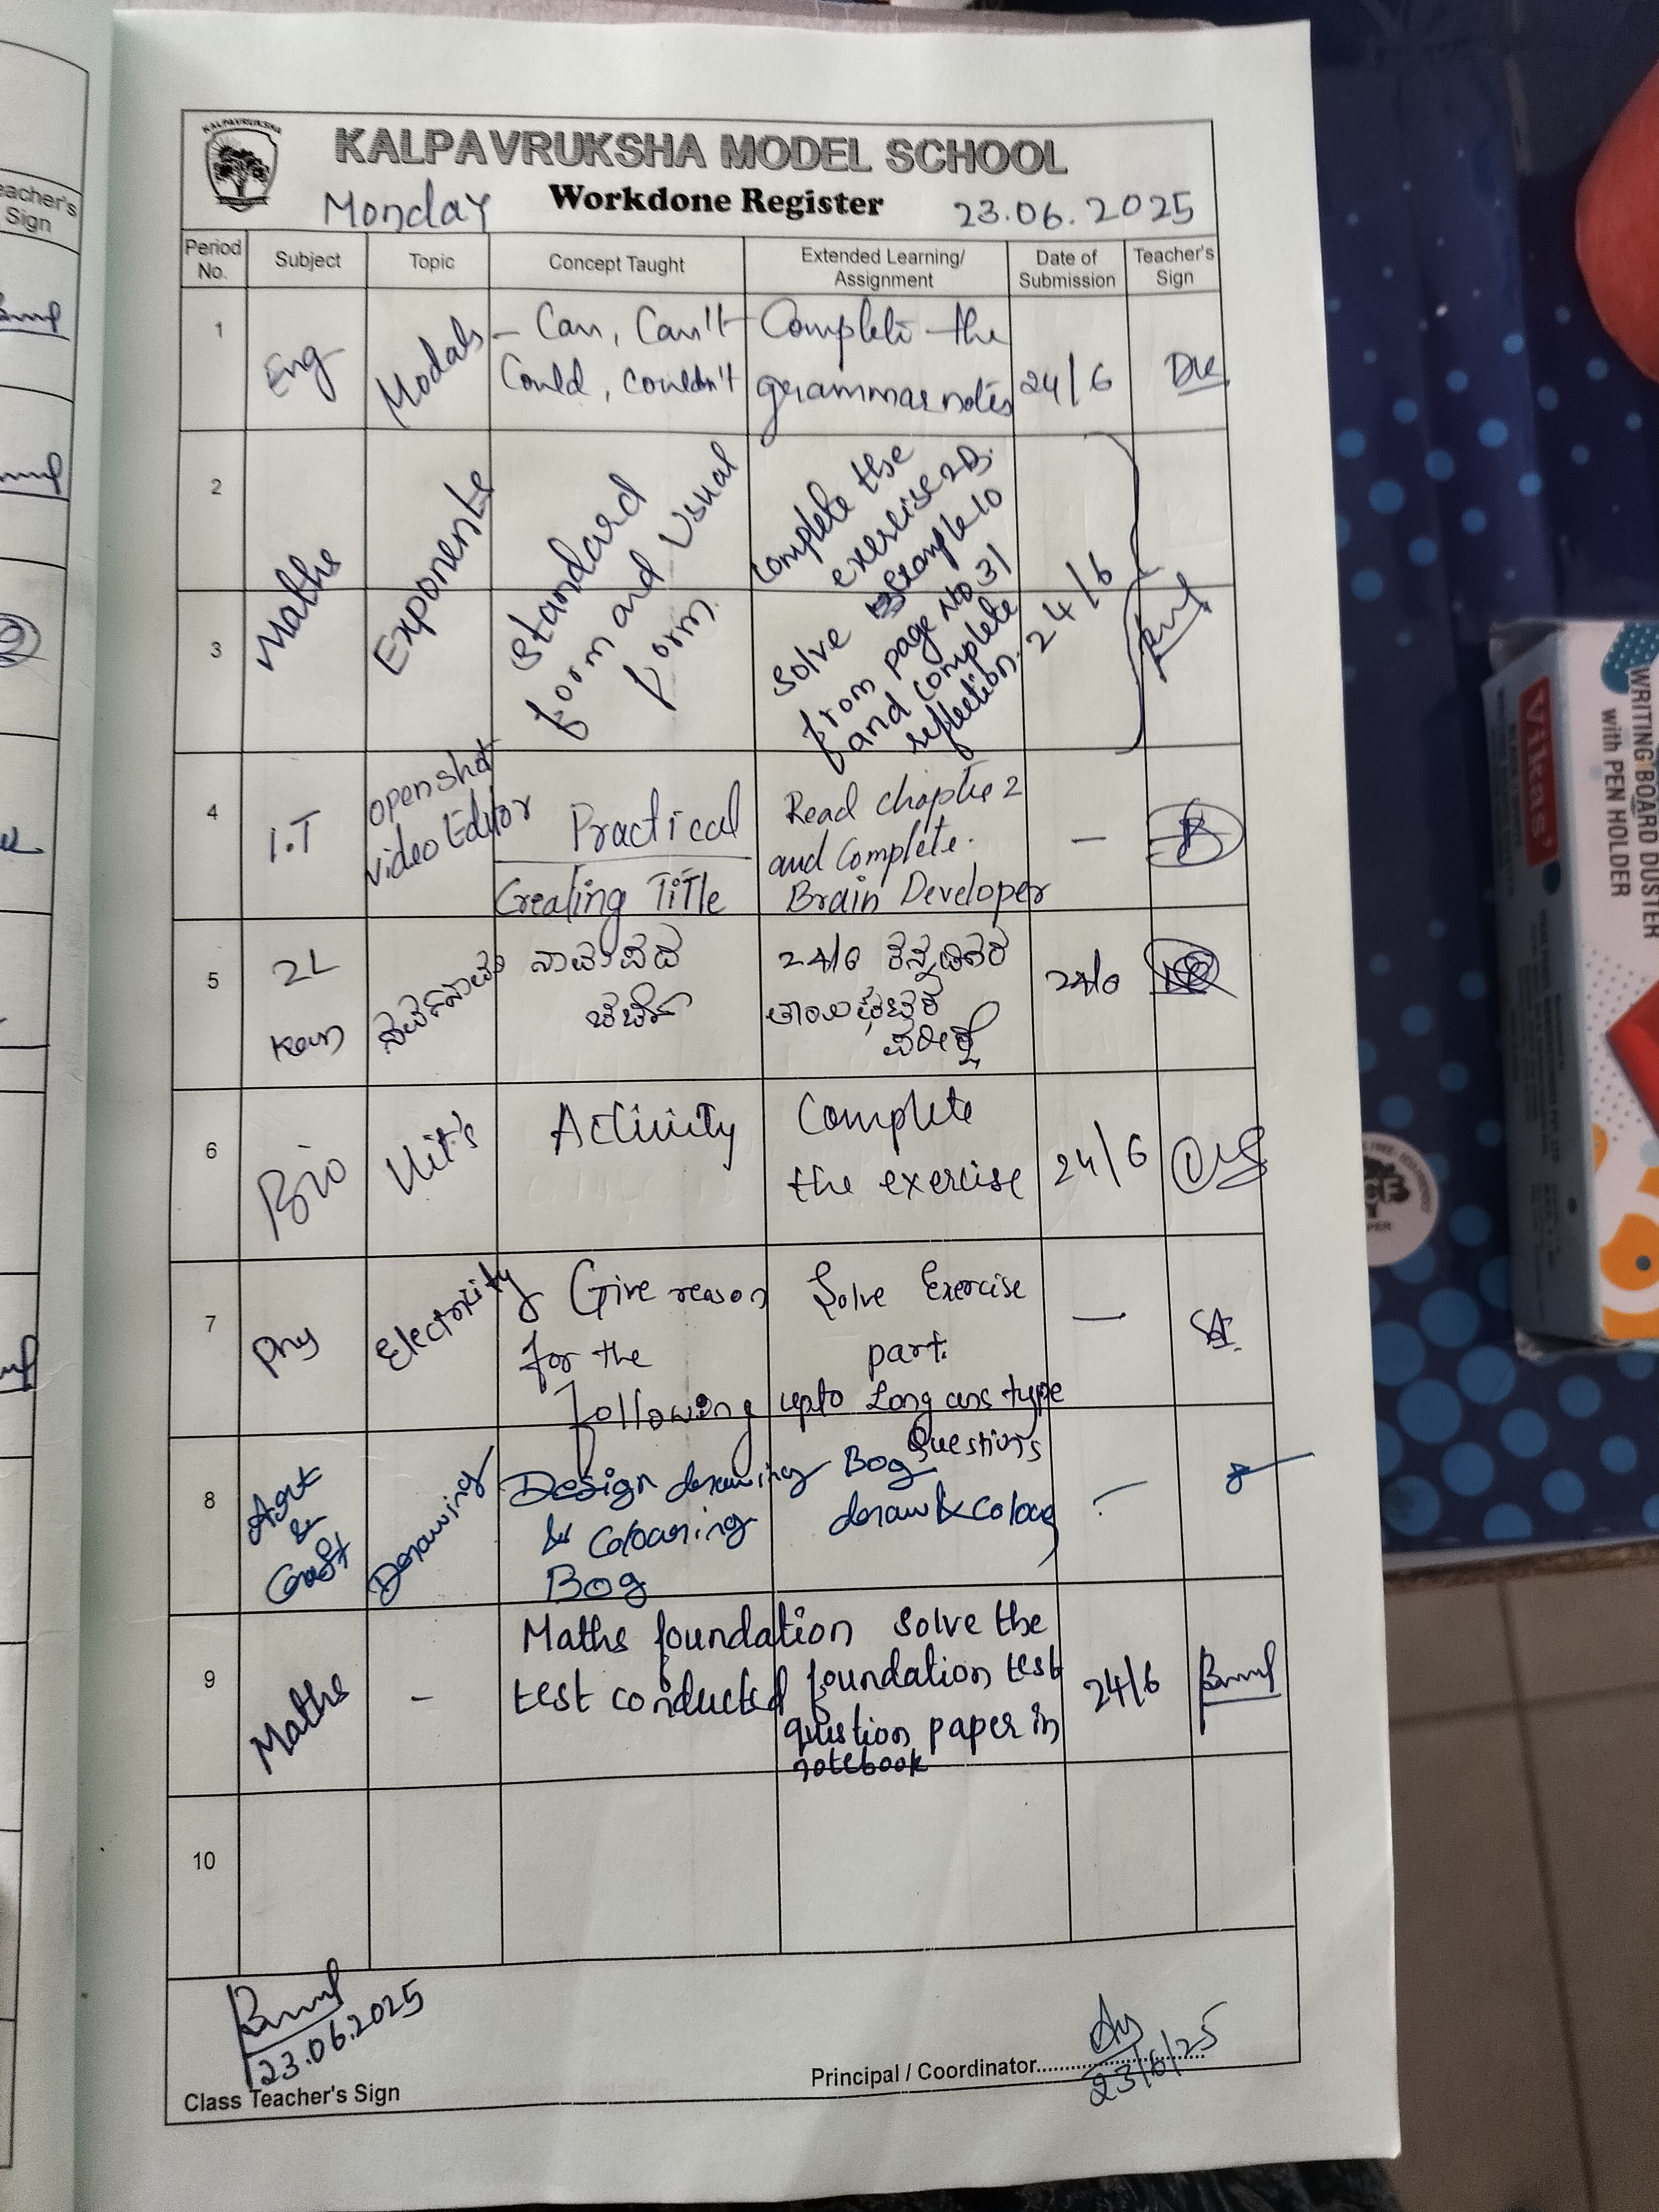 KALPAVRUKSHA
KALPAVRUKSHA MODEL SCHOOL
Monday Workdone Register 23.06.2025
Period No. Subject Topic Concept Taught Extended Learning/ Assignment Date of Submission Teacher's Sign
1 Eng Modals – Can, Can't Complete the
Could, couldn't grammar notes 24/6
2
3 Maths Exponents Standard
form and Usual
form
Complete the
exercise 2B.
Solve Example 10
from page No 31
and complete
reflection. 24/6
4 I.T openshot
video Editor
Practical
Creating Title
Read chapter 2
and Complete.
Brain Developer
—
5 2L
Kan
ನಾಮಪದ
24/6
24/6
6 Bio Activity Complete
the exercise 24/6
7 Phy Electricity Give reason
for the
following
Solve Exercise
part.
upto Long ans type
Questions
—
8 Art
&
Craft
Drawing
Design drawing
& Colouring
Bog
Bog
draw & Colour
–
9 Maths - Maths foundation
test conducted
solve the
foundation test
question paper in
notebook
24/6
10
23.06.2025
Class Teacher's Sign
Principal / Coordinator
23/6/25
eacher's
Sign
Vikas
WRITING BOARD DUSTER
with PEN HOLDER